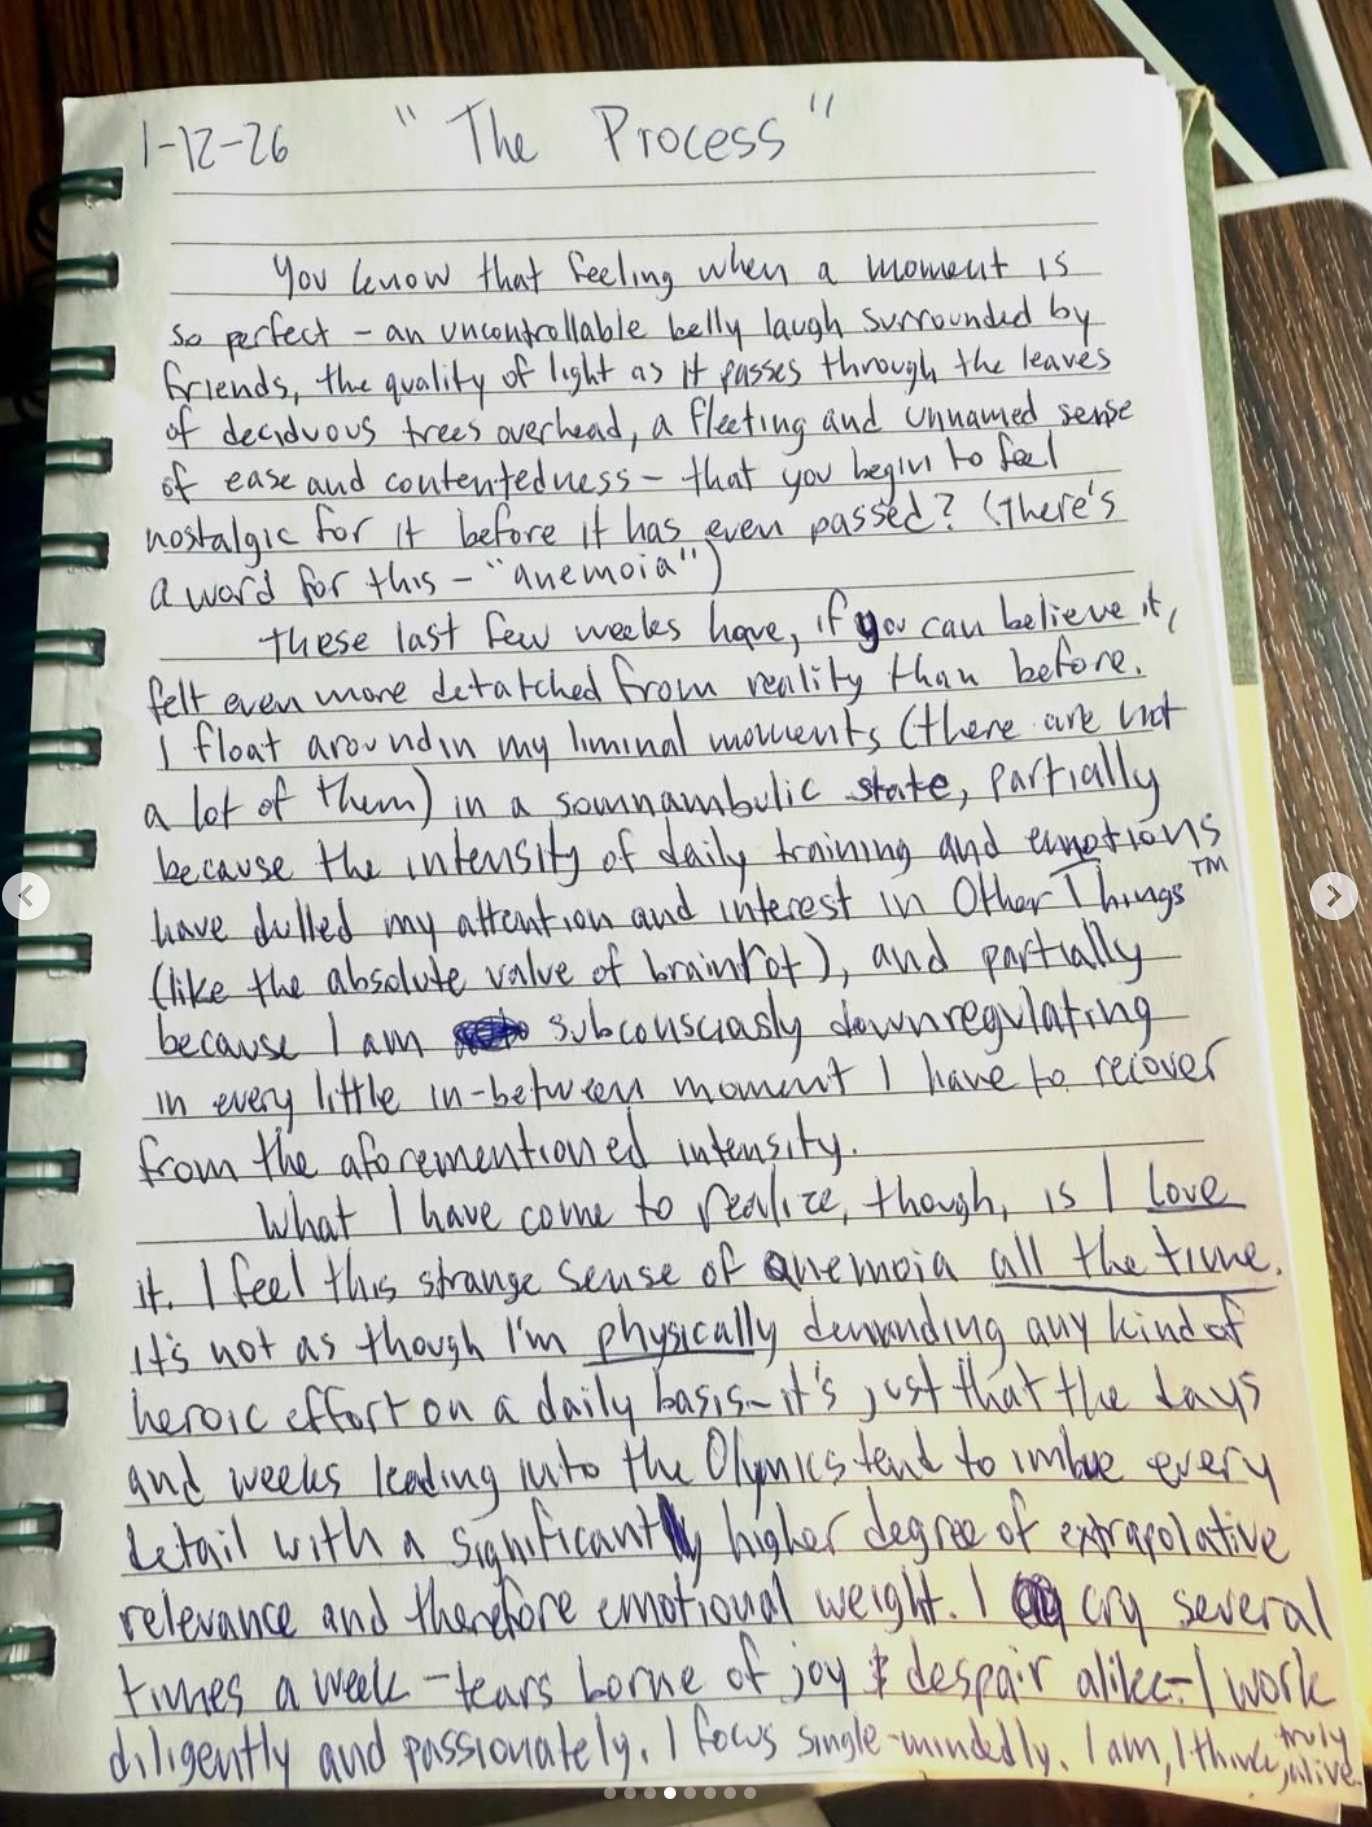 1-12-26 "The Process"
You know that feeling when a moment is
so perfect - an uncontrollable belly laugh surrounded by
friends, the quality of light as it passes through the leaves
of deciduous trees overhead, a fleeting and unnamed sense
of ease and contentedness - that you begin to feel
nostalgic for it before it has even passed? (There's
a word for this - "anemoia")
These last few weeks have, if you can believe it,
felt even more detatched from reality than before.
I float around in my liminal moments (there are not
a lot of them) in a somnambulic state, partially
because the intensity of daily training and emotions
have dulled my attention and interest in Other Things™
(like the absolute value of brainrot), and partially
because I am subconsciously downregulating
in every little in-between moment I have to recover
from the aforementioned intensity.
What I have come to realize, though, is I love
it. I feel this strange sense of anemoia all the time.
It's not as though I'm physically demanding any kind of
heroic effort on a daily basis - it's just that the days
and weeks leading into the Olymics tend to imbue every
detail with a significantly higher degree of extrapolative
relevance and therefore emotional weight. I cry several
times a week - tears borne of joy & despair alike - I work
diligently and passionately. I focus single-mindedly. I am, I think, truly
alive.